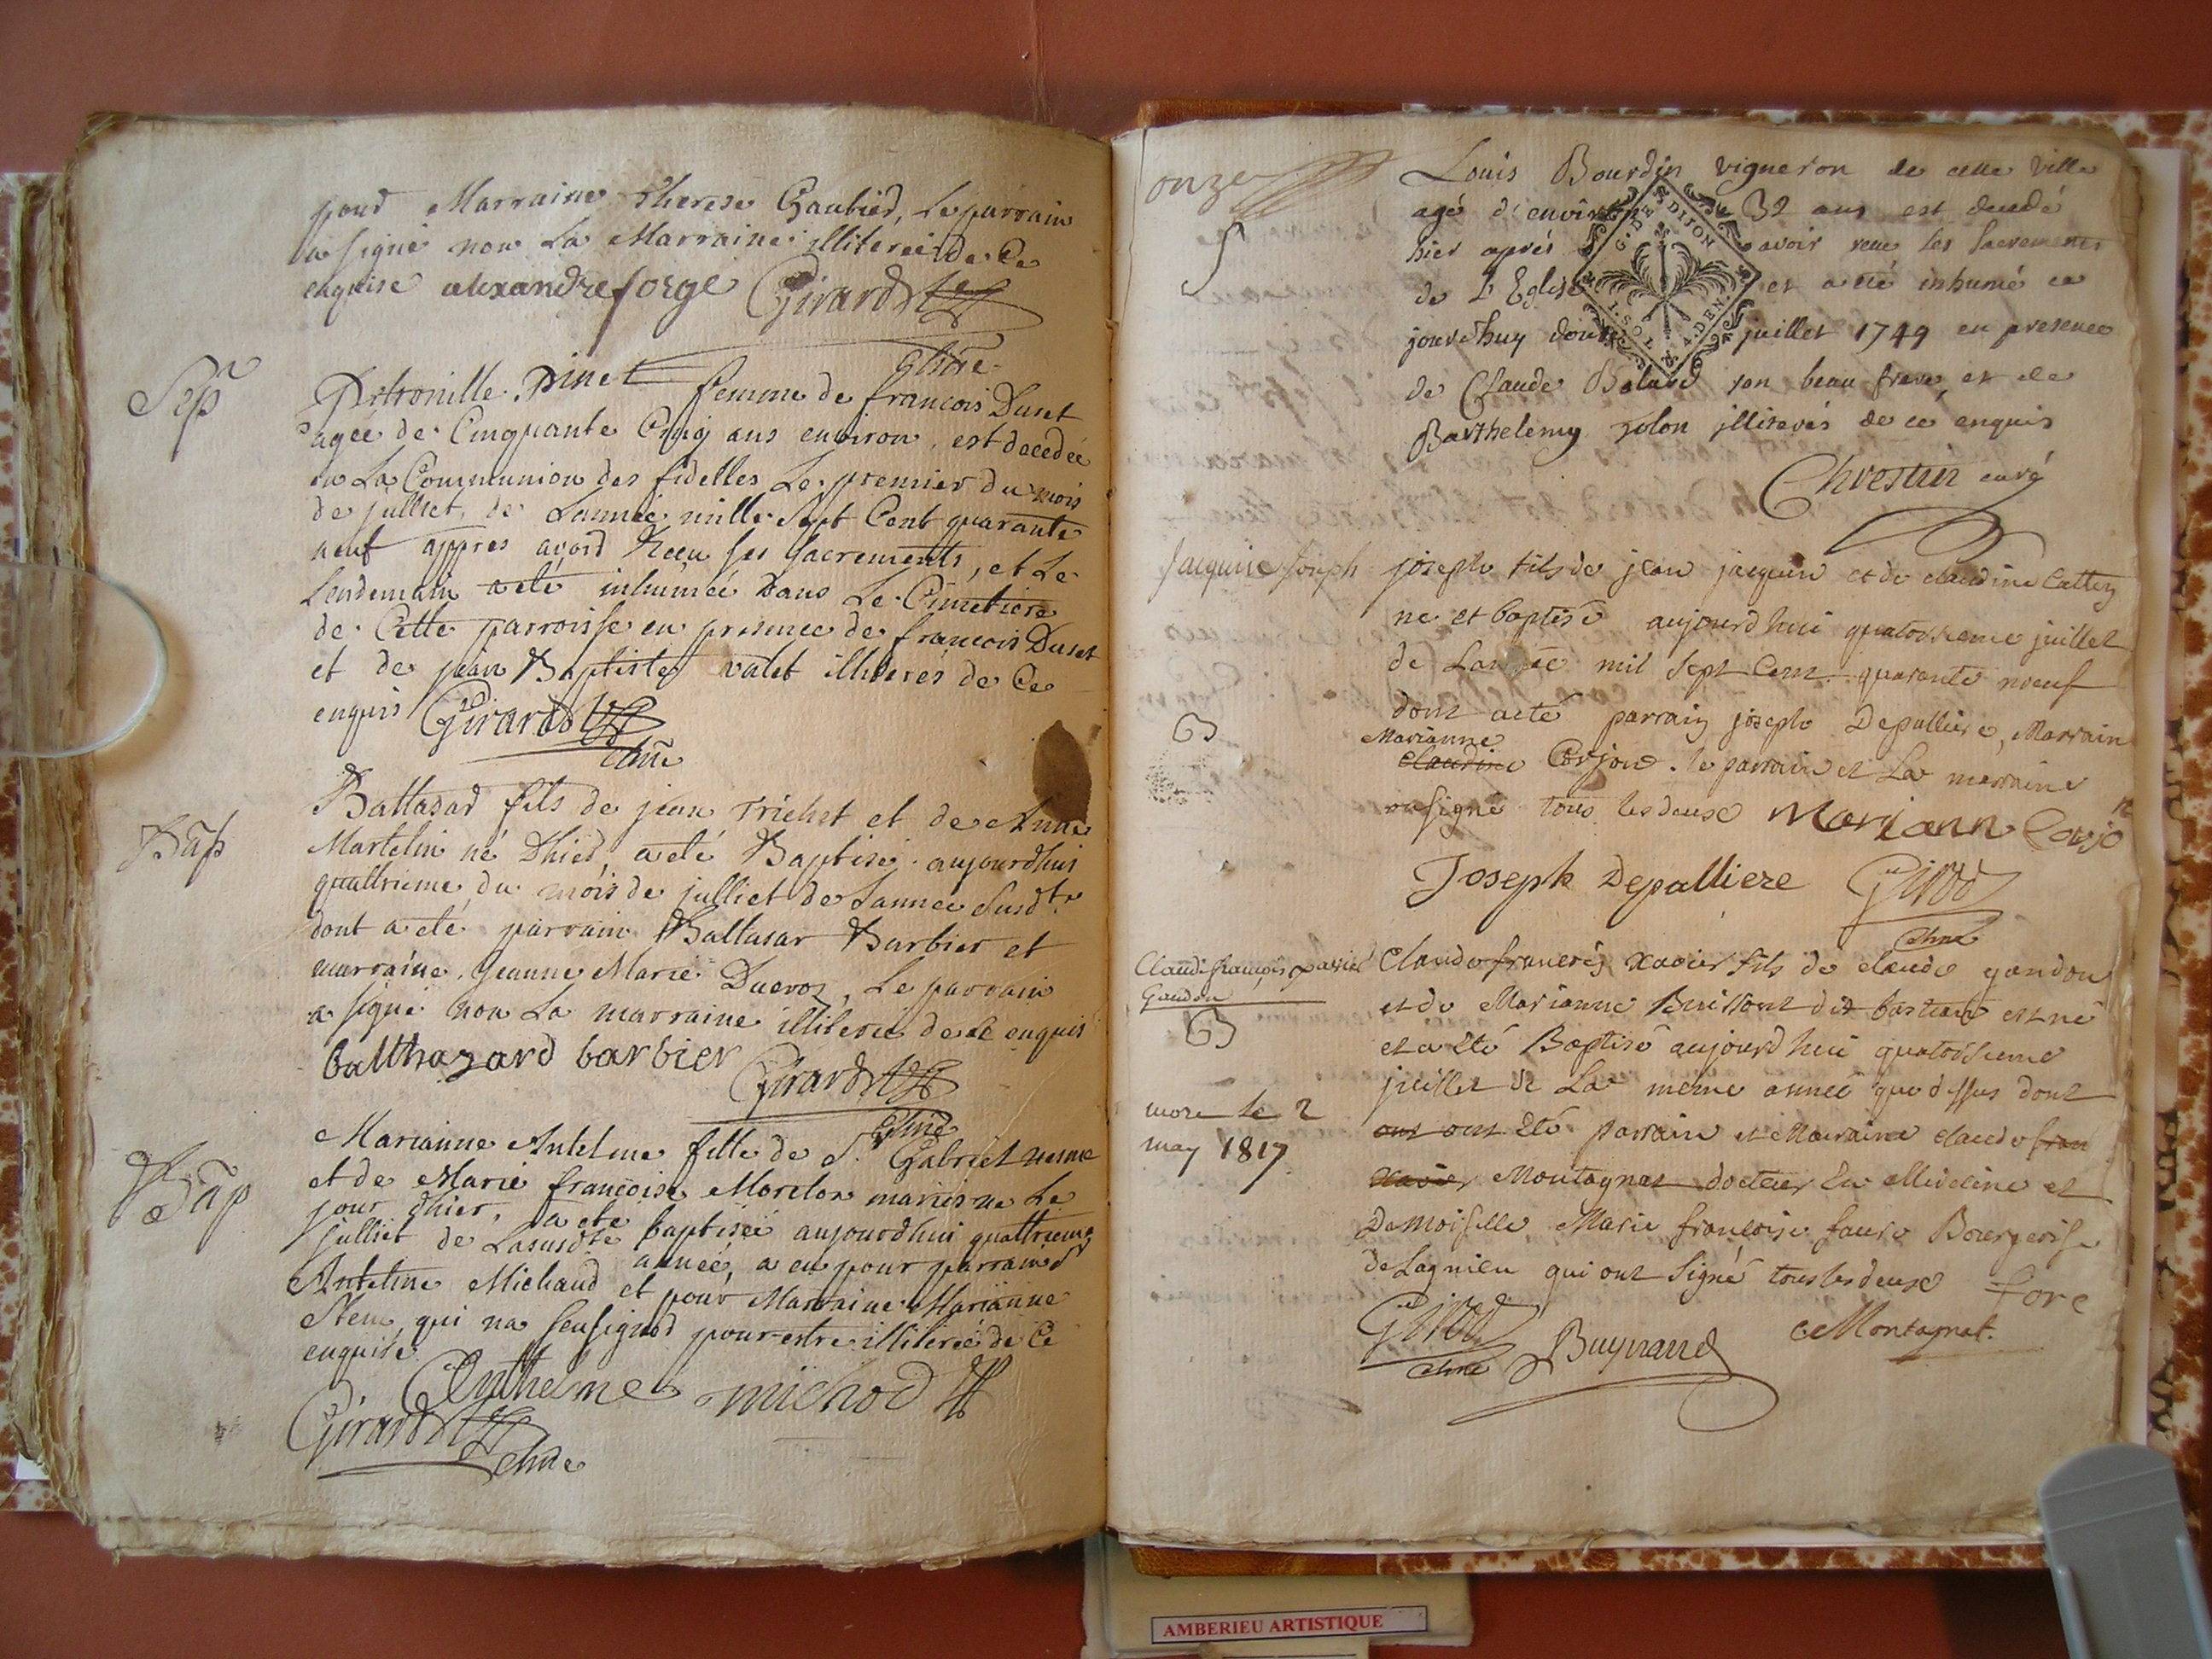 pour Marraine Therese Gaubier, Le parrain
a signé non La Marraine illiterée de Ce
enquise alexandre forge Girard
chñe
Sep
Petronille Pinet femme de françois Duset
agée de Cinquante Cinq ans environ, est decedée
en La Communion des fidelles Le premier du mois
de julliet, de Lannée mille Sept Cent quarante
neuf appres avoir Receu ses sacrements, et Le
Lendemain a eté inhumée Dans Le Cimetiere
de Cette parroisse en presence de françois Duset
et de jean Baptiste valet illiterés de Ce
enquis Girard
chñe
Bap
Baltasar fils de jean Trichet et de Anne
Martelin né Dhier, a eté Baptisé aujourdhui
quattrieme du mois de julliet de Lannée Susdte
dont a eté parrain Baltasar Barbier et
marraine Jeanne Marie Ducroz, Le parrain
a signé non La marraine illiterée de Ce enquis
balthazard barbier Girard
chñe
Bap
Marianne Antelme fille de Sr. Gabriel
et de Marie françoise Morelon mariés ne Le
jour dhier, a eté baptisée aujourdhui quattrieme
julliet de Lasusdte année, a eu pour parrain
Antelme Michaud et pour Marraine Marianne
qui na seu signer pour estre illiterée de Ce
enquise
Anthelme michod
Girard
chñe
onze
Louis Bourdin vigneron de cette ville
agé d'environ 32 ans est decedé
hier aprés avoir receu les sacrements
de L'Eglise et a eté inhumé ce
jourdhuy douze juillet 1749 en presence
de Claude Bolard son beau frere, et de
Barthelemy jolon illiterés de ce enquis
Chrestin curé
G. DE DIJON
1. SOL 4. DEN.
Jacquin Joseph
joseph fils de jean jacquin et de claudine Cattin
ne et baptisé aujourdhui quatorsieme juillet
de Lannée mil sept Cent quarante neuf
dont acte parrain joseph Depalliere, Marraine
Marianne
claudine Corjon. le parrain et La marraine
ont signé tous les deux Mariann Corjon
Joseph Depalliere Girod
chne
B
Claude françois xavier
Gandon
B
mort le 2
may 1817
Claude francois xavier fils de claude gandon
et de Marianne Buissont dit bastian est né
et a eté Baptisé aujourd hui quatorsieme
juillet de La meme année que dessus dont
ont ont eté parrain et Marraine claude fran
xavier Montagnat docteur En Medecine et
Demoiselle Marie françoise faure Bourgeoise
de Lagnieu qui ont Signé tous les deux fore
Girod Buynand C Montagnat.
chne
AMBERIEU ARTISTIQUE